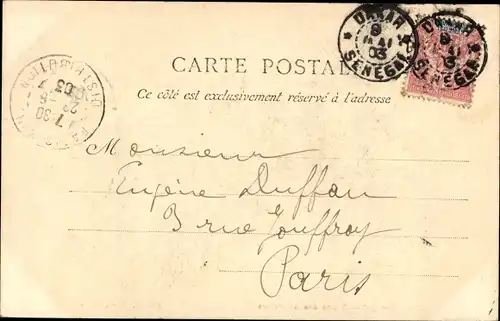 DAKAR
8
MAI
03
SÉNÉGAL
DAKAR
8
MAI
03
SÉNÉGAL
CARTE POSTALE
Ce côté est exclusivement réservé à l'adresse
DISTRIBUTION
7 30
22
5
03
Monsieur
Eugène Duffau
3 rue Jouffroy
Paris